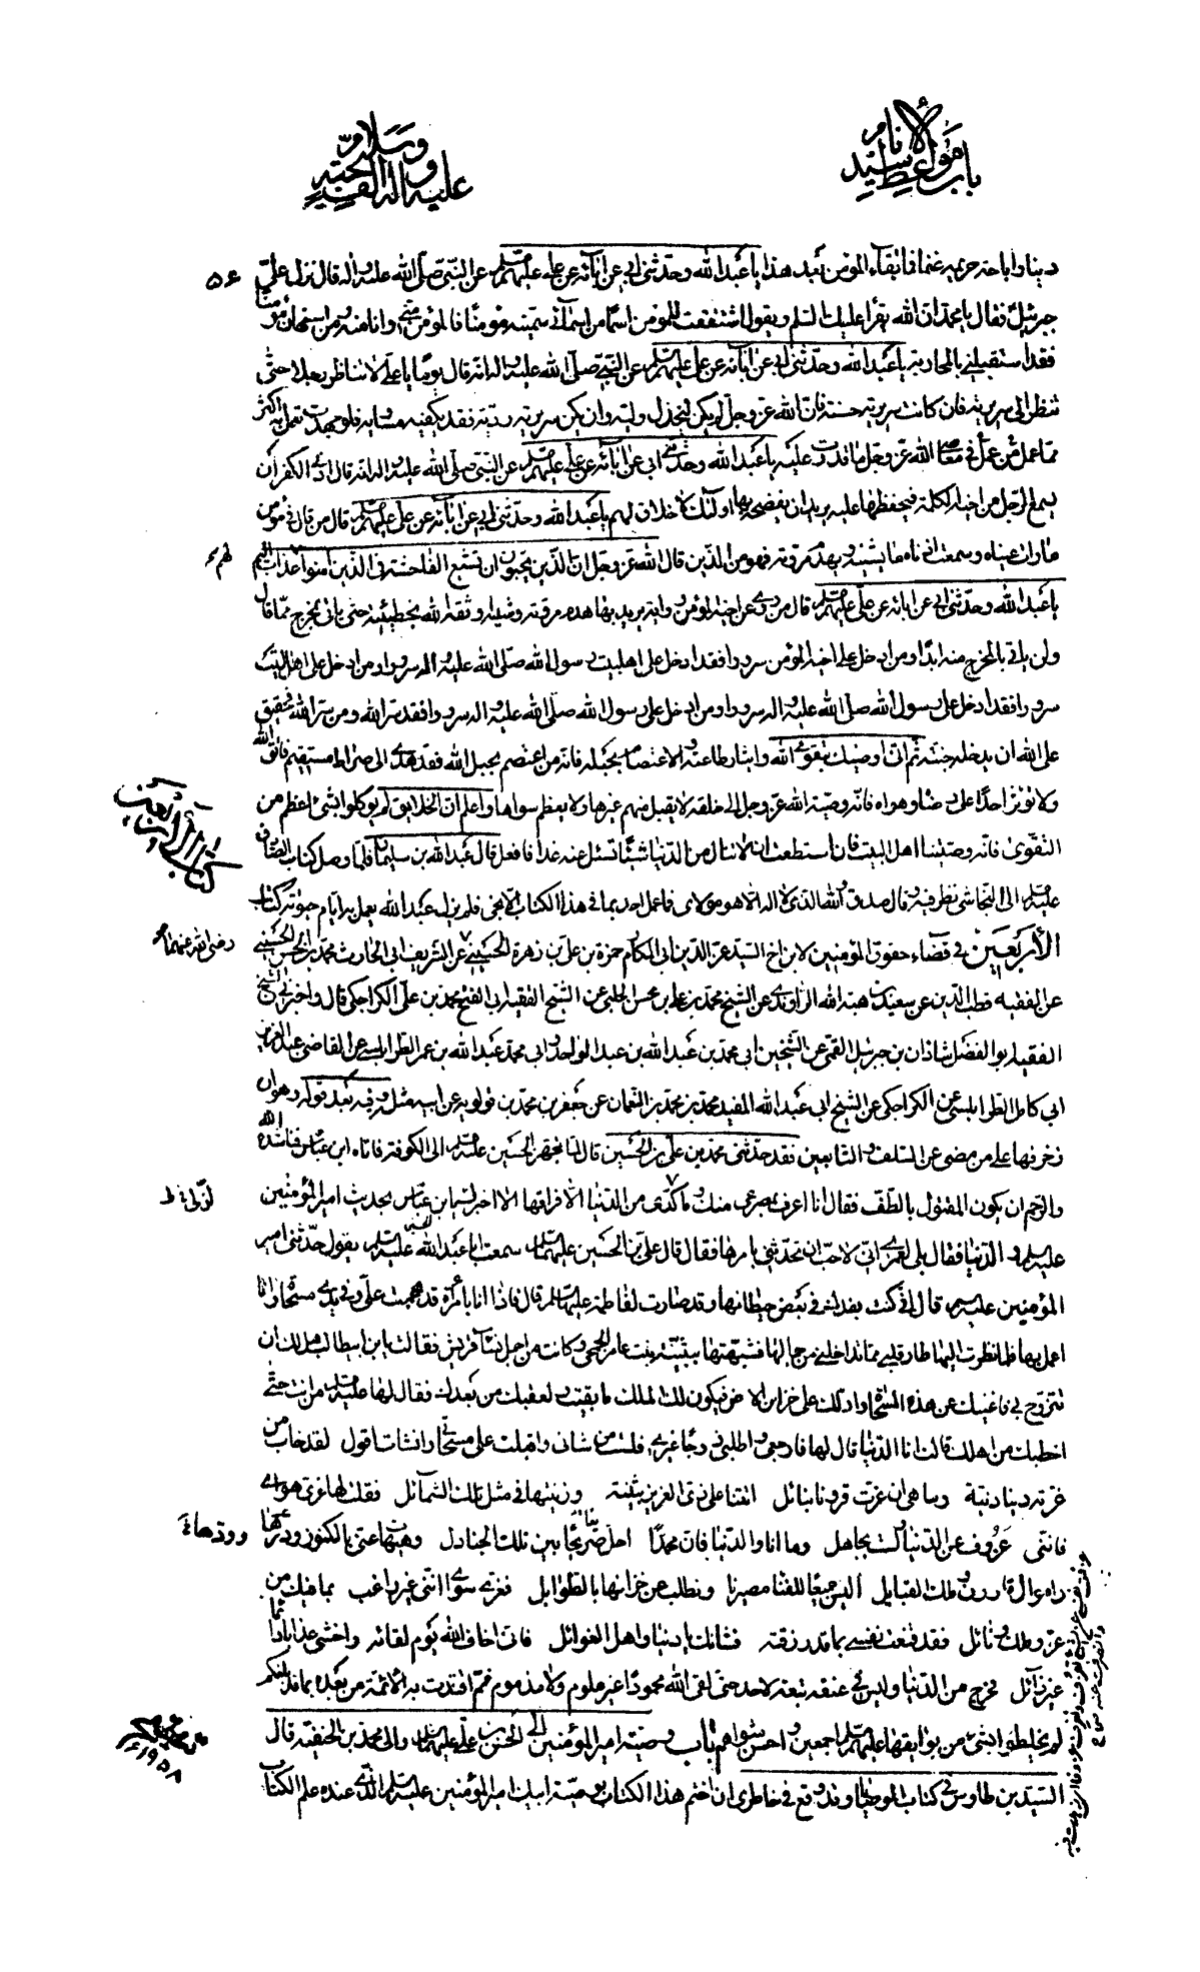 باب مواعظ سيد الأنام
عليه وآله التحية وسلام
دينا واباحة حريمه غنما فاتق الله المؤمن بعد هذا يا عبد الله وحدثني ابي عن آبائه عن علي عليهم السلام عن النبي صلى الله عليه واله قال نزل علي
جبرئيل فقال يا محمد ان الله يقرأ عليك السلم ويقول اشتققت للمؤمن اسما من اسمائي سميته مؤمنا فالمؤمن مني وانا منه ومن استهان مؤمنا
فقد استقبلني بالمحاربة يا عبد الله وحدثني ابي عن آبائه عن علي عليهم السلام عن النبي صلى الله عليه واله انه قال يوما يا علي لا تناظر رجلا حتى
تنظر الى سريرته فان كانت سريرته حسنة فان الله عز وجل لم يكن ليخذل وليه وان تكن سريرته ردية فقد يكفيه مساويه فلو جهدت تعمل به اكثر
مما عمل من معاصي الله عز وجل ما قدرت عليه يا عبد الله وحدثني ابي عن آبائه عن علي عليهم السلام عن النبي صلى الله عليه واله انه قال ادنى الكفر ان
يسمع الرجل من اخيه الكلمة فيحفظها عليه يريد ان يفضحه بها اولئك لا خلاق لهم يا عبد الله وحدثني ابي عن آبائه عن علي عليهم السلام قال من قال في مؤمن
ما رات عيناه وسمعت اذناه ما يشينه ويهدم مروته فهو من الذين قال الله عز وجل ان الذين يحبون ان تشيع الفاحشة في الذين آمنوا لهم عذاب اليم
يا عبد الله وحدثني ابي عن آبائه عن علي عليهم السلام قال من روى عن اخيه المؤمن رواية يريد بها هدم مروته وشينه اوثقه الله بخطيئته حتى ياتي بمخرج مما قال
ولن ياتي بالمخرج منه ابدا ومن ادخل على اخيه المؤمن سرورا فقد ادخل على اهل بيت رسول الله صلى الله عليه واله سرورا ومن ادخل على اهل البيت
سرورا فقد ادخل على رسول الله صلى الله عليه واله سرورا ومن ادخل على رسول الله صلى الله عليه واله سرورا فقد سر الله ومن سر الله فحقيق
على الله ان يدخله جنته ثم اني اوصيك بتقوى الله وايثار طاعته والاعتصام بحبله فانه من اعتصم بحبل الله فقد هدي الى صراط مستقيم فاتق الله
ولا تؤثر احدا على رضاه وهواه فانه وصية الله عز وجل الى خلقه لا يقبل منهم غيرها ولا يعظم سواها واعلم ان الخلايق لم يوكلوا بشئ اعظم من
التقوى فانه وصيتنا اهل البيت فان استطعت ان لا تنال من الدنيا شيئا تسئل عنه غدا فافعل قال عبد الله بن سليمان فلما وصل كتاب الصادق
عليه السلام الى النجاشي نظر فيه وقال صدق والله الذي لا اله الا هو مولاي فما عمل احد بما في هذا الكتاب الا نجى فلم يزل عبد الله يعمل به ايام حيوته كتاب
الأربعين في قضاء حقوق المؤمنين لابن اخ السيد عز الدين ابي المكارم حمزة بن علي بن زهرة الحسيني عن الشريف ابي الحارث محمد بن الحسن الحسيني
عن الفقيه قطب الدين عن سعيد بن هبة الله الراوندي عن الشيخ محمد بن علي بن محسن الحلبي عن الشيخ الفقيه ابي الفتح محمد بن علي الكراجكي قال واخبرني الشيخ
الفقيه ابو الفضل شاذان بن جبرئيل القمي عن الشيخين ابي محمد بن عبد الله بن عبد الواحد وابي محمد عبد الله بن عمر الطرابلسي عن القاضي عبد العزيز
ابي كامل الطرابلسي عن الكراجكي عن الشيخ ابي عبد الله المفيد محمد بن محمد بن النعمان عن جعفر بن محمد بن قولويه عن ابيه مثله وفيه بعد قوله وهوان
زخرفها على من مضى عن السلف والتابعين فقد حدثني محمد بن علي بن الحسين قال لما تجهز الحسين عليه السلام الى الكوفة فاتاه ابن عباس فناشده الله
والرحم ان يكون المقتول بالطف فقال انا اعرف بمصرعي منك وما كدي من الدنيا الا فراقها الا اخبرك يا بن عباس بحديث امير المؤمنين
عليه السلم والدنيا فقال بلى لعمري اني لاحب ان تحدثني بامرها فقال قال علي بن الحسين عليهما السلام سمعت ابا عبد الله عليه السلم يقول حدثني امير
المؤمنين عليه السلم قال اني كنت بفدك في بعض حيطانها وقد صارت لفاطمة عليها السلم قال فاذا انا بامرأة قد هجمت علي وفي يدي مسحاة وانا
اعمل بها فلما نظرت اليها طار قلبي مما تداخلني من جمالها فشبهتها ببثينة بنت عامر الجمحي وكانت من اجمل نساء قريش فقالت يا بن ابيطالب هل لك ان
تتزوج بي فاغنيك عن هذه المسحاة وادلك على خزاين الارض فيكون لك الملك ما بقيت ولعقبك من بعدك فقال لها عليه السلم من انت حتى
اخطبك من اهلك قالت انا الدنيا قال لها فارجعي واطلبي زوجا غيري فلست من شاني واقبلت على مسحاتي وانشات اقول لقد خاب من
غرته دنيا دنية وما هي ان غرت قرونا بنائل اتتنا على زي العزيز بثينة وزينتها في مثل تلك الشمائل فقلت لها غري سواي
فانني عزوف عن الدنيا ولست بجاهل وما انا والدنيا فان محمدا احل صريعا بين تلك الجنادل وهبها اتتني بالكنوز ودرها
واموال قارون وملك القبايل اليس جميعا للفنا مصيرنا ونطلب من خزانها بالطوايل فغري سواي انني غير راغب بما فيك من
عز وملك ونائل فقد قنعت نفسي بما قد رزقته فشانك يا دنيا واهل الغوائل فاني اخاف الله يوم لقائه واخشى عذابا دائما
غير زآئل فخرج من الدنيا وليس في عنقه تبعة لاحد حتى لقى الله محمودا غير ملوم ولا مذموم ثم اقتدت به الائمة من بعده بما قد بلغكم
لم يتلطخوا بشئ من بوايقها عليهم السلم اجمعين واحسن مثواهم باب وصية امير المؤمنين الى الحسن بن علي عليهما السلام والى محمد بن الحنفية قال
السيد بن طاوس في كتاب الوصايا وقد وقع في خاطري ان اختم هذا الكتاب بوصية ابيك امير المؤمنين عليه السلم الذي عنده علم الكتاب
۵۶
لهم
كتاب الأربعين
رضي الله عنهما